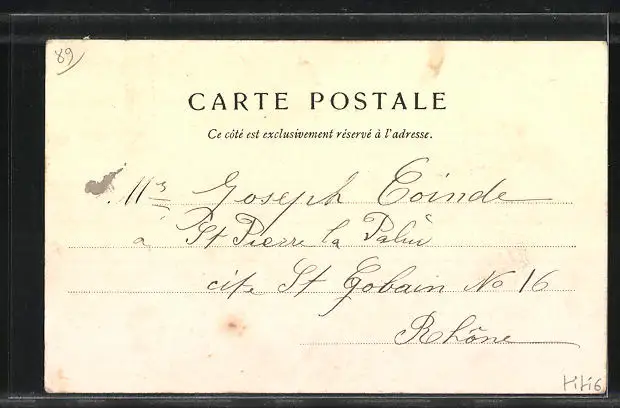 89
CARTE POSTALE
Ce côté est exclusivement réservé à l'adresse.
Mr Joseph Coinde
a St Pierre la Palû
cite St Gobain No 16
Rhône